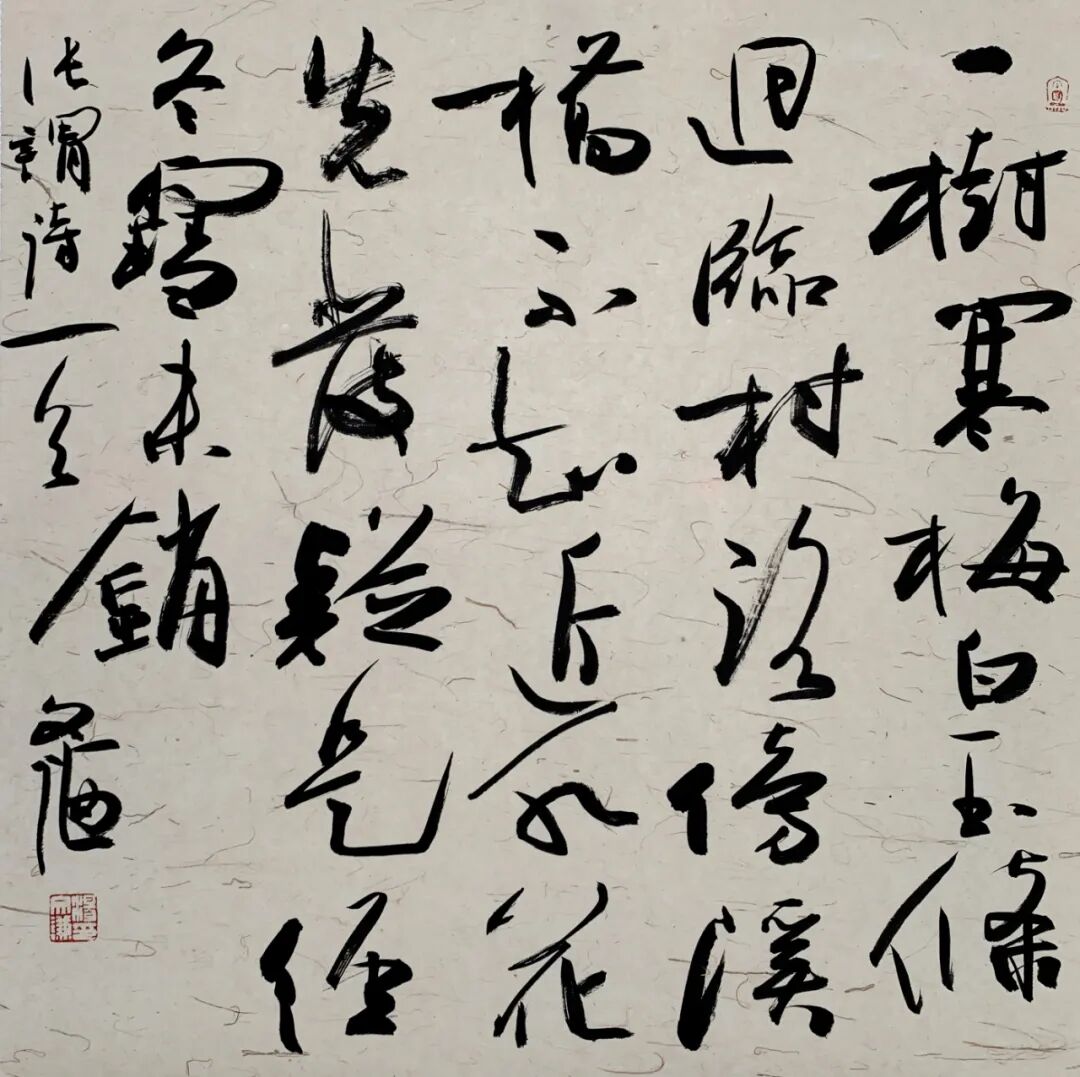 一樹寒梅白玉條
迴臨村路傍溪
橋不知近水花
先發疑是經
冬雪未銷
張謂詩一首